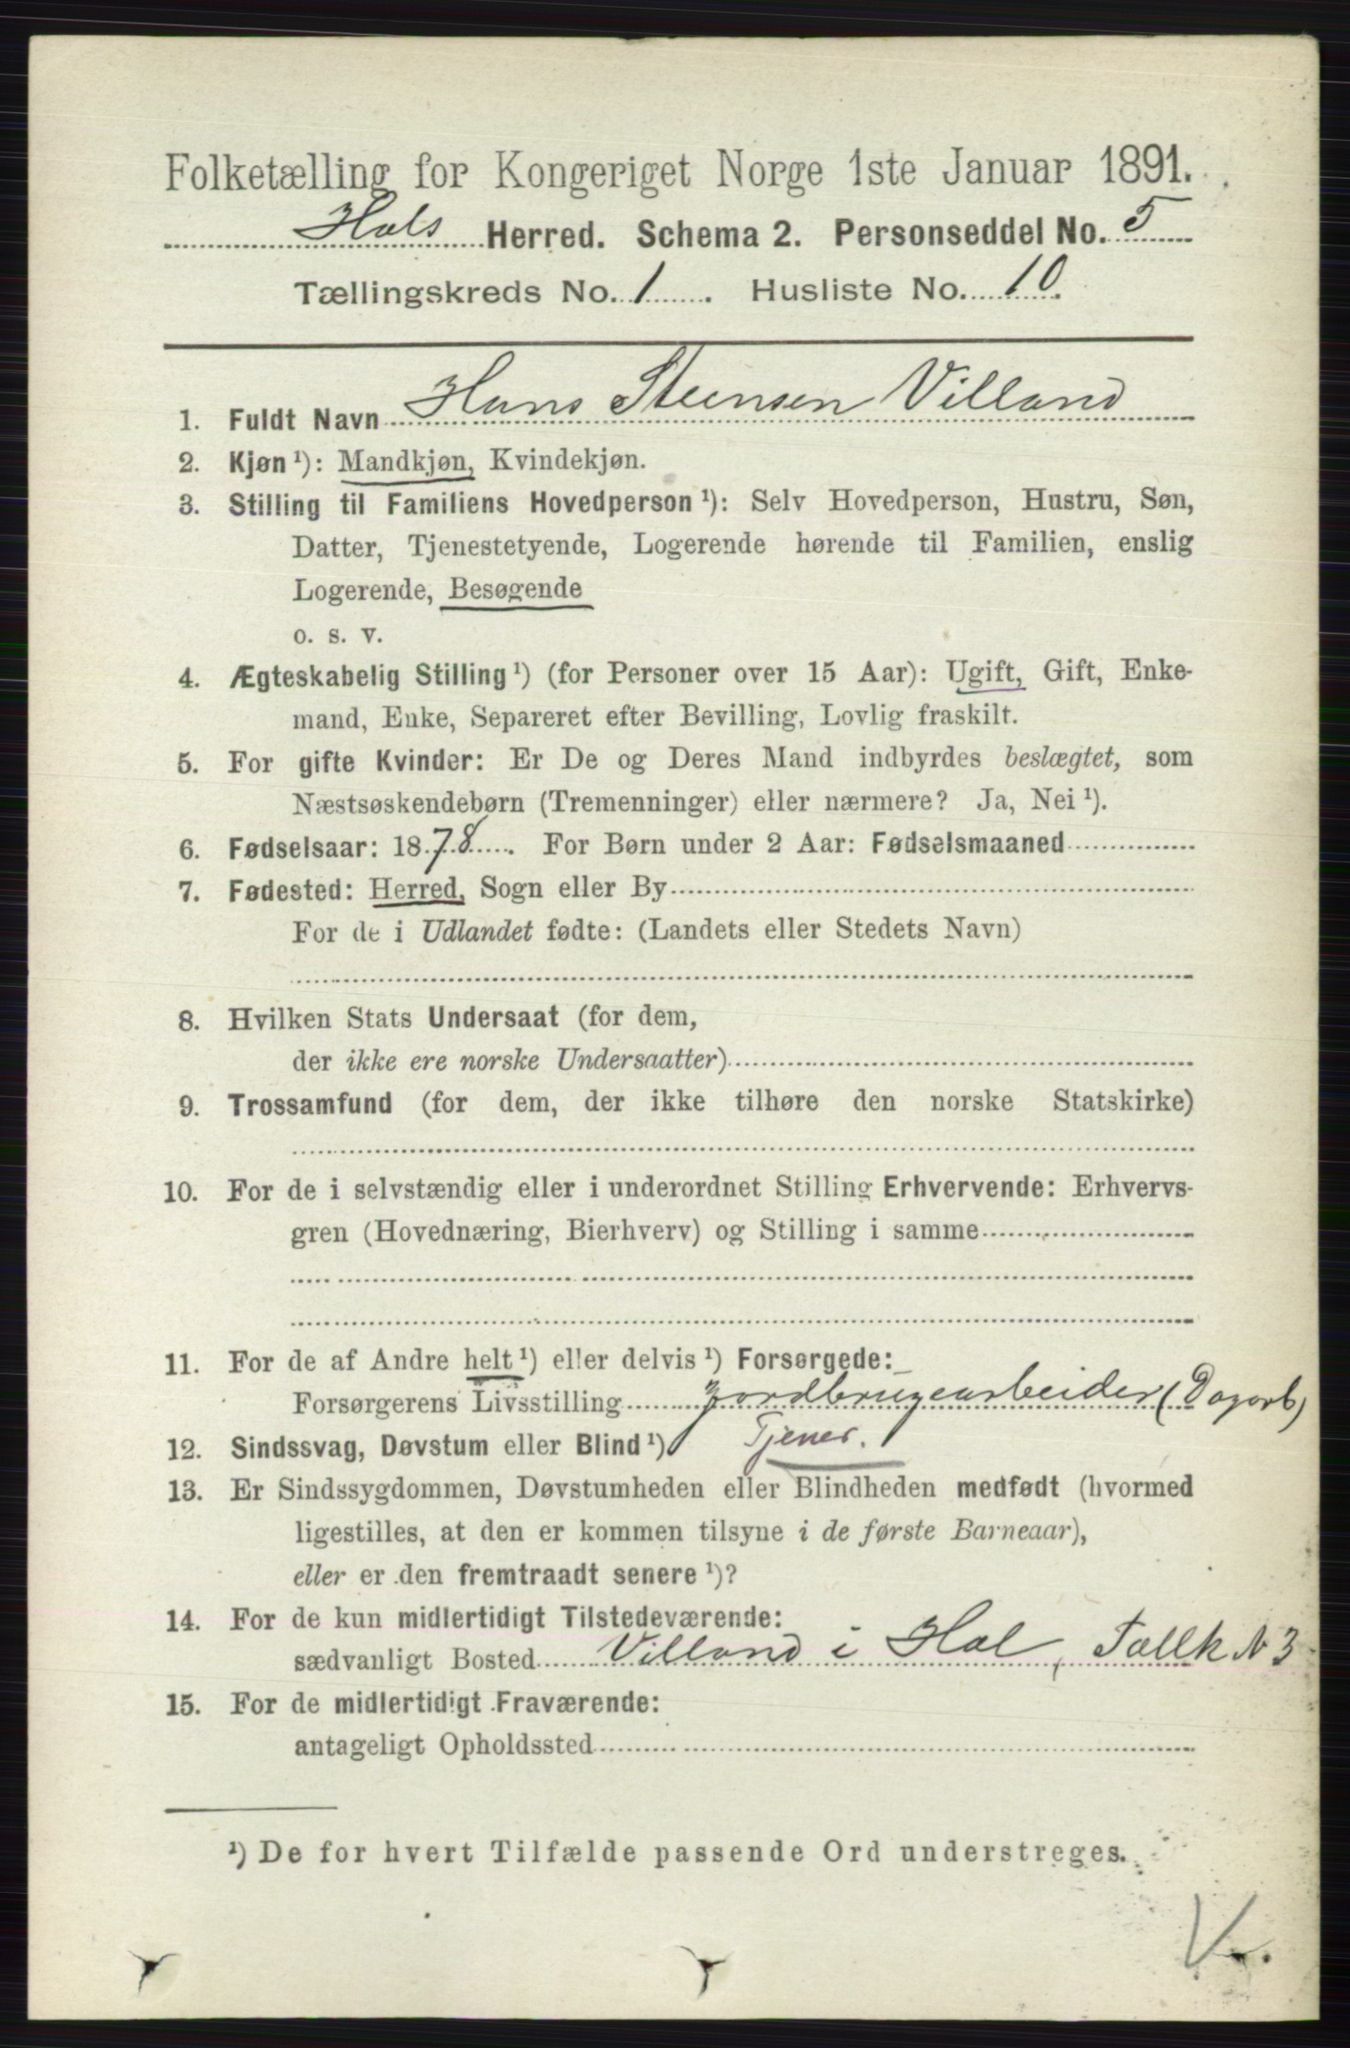 Folketælling for Kongeriget Norge 1ste Januar 1891.
Hols Herred. Schema 2. Personseddel No. 5
Tællingskreds No. 1. Husliste No. 10.
1. Fuldt Navn Hans Steensen Villand
2. Kjøn¹): Mandkjøn, Kvindekjøn.
3. Stilling til Familiens Hovedperson¹): Selv Hovedperson, Hustru, Søn,
Datter, Tjenestetyende, Logerende hørende til Familien, enslig
Logerende, Besøgende
o. s. v.
4. Ægteskabelig Stilling¹) (for Personer over 15 Aar): Ugift, Gift, Enke-
mand, Enke, Separeret efter Bevilling, Lovlig fraskilt.
5. For gifte Kvinder: Er De og Deres Mand indbyrdes beslægtet, som
Næstsøskendebørn (Tremenninger) eller nærmere? Ja, Nei¹).
6. Fødselsaar: 1878. For Børn under 2 Aar: Fødselsmaaned
7. Fødested: Herred, Sogn eller By
For de i Udlandet fødte: (Landets eller Stedets Navn)
8. Hvilken Stats Undersaat (for dem,
der ikke ere norske Undersaatter)
9. Trossamfund (for dem, der ikke tilhøre den norske Statskirke)
10. For de i selvstændig eller i underordnet Stilling Erhvervende: Erhvervs-
gren (Hovednæring, Bierhverv) og Stilling i samme
11. For de af Andre helt¹) eller delvis¹) Forsørgede:
Forsørgerens Livsstilling Jordbrugearbeider (Dagarb)
12. Sindssvag, Døvstum eller Blind¹) Tjener.
13. Er Sindssygdommen, Døvstumheden eller Blindheden medfødt (hvormed
ligestilles, at den er kommen tilsyne i de første Barneaar),
eller er den fremtraadt senere¹)?
14. For de kun midlertidigt Tilstedeværende:
sædvanligt Bosted Villand i Hol, Tællk N 3
15. For de midlertidigt Fraværende:
antageligt Opholdssted
¹) De for hvert Tilfælde passende Ord understreges.
V.